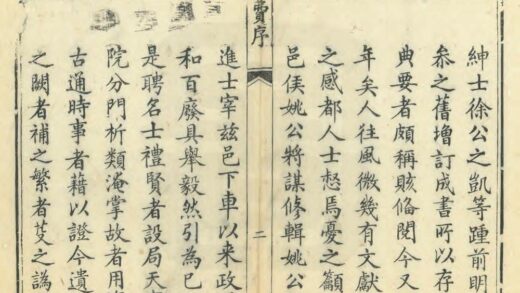 紳士徐公之凱等踵前明
叅之舊增訂成書所以存
典要者頗稱賅俻閱今又
年矣人往風微幾有文獻
之感都人士惄焉憂之籲
邑侯姚公將謀修輯姚公
序
二
進士宰兹邑下車以来政
和百廢具舉毅然引為已
是聘名士禮賢者設局天
院分門析類淹掌故者用
古通時事者藉以證今遺
之闕者補之繁者芟之譌